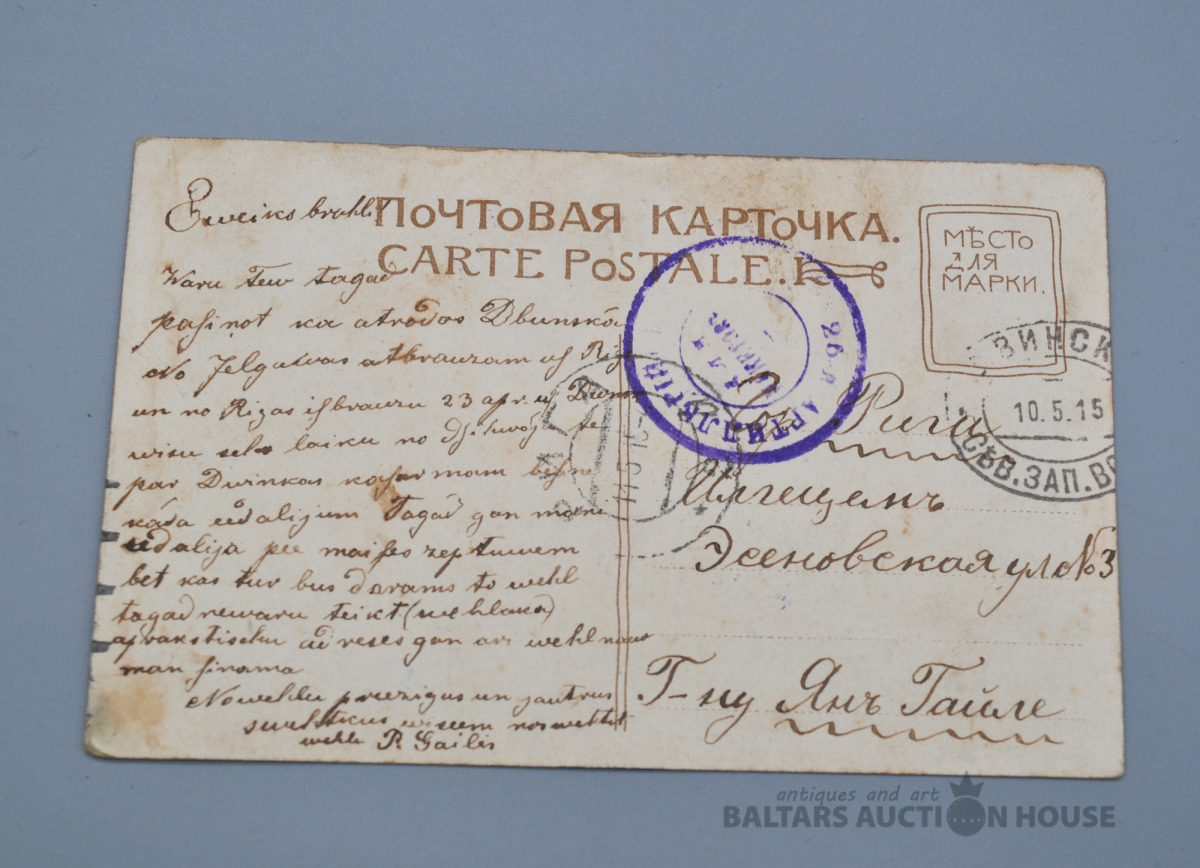 Sweiks brahli
ПОЧТОВАЯ КАРТОЧКА.
CARTE POSTALE.
МѢСТО
ДЛЯ
МАРКИ.
Waru Tew tagad
pasinot ka atrodos Dbinskā
No Jelgawas atbrauzam us Rig
un no Rigas isbrauzu 23 apr. us Dwin
wisu laiku no
par Dwinkas
kāda Tagad gan mani
edalija pee maises zeptuwem
bet kas tur bus darams to wehl
tagad newaru teikt (wehlaka)
aprakstischu adreses gan ari wehl naw
man sinama
Nowehlu preezigus un jautrus
swehtkus wiseem nowehlet
wehl P. Gailis
26-я
АРТИЛЛ
ВИНСК
10.5.15
СѢВ.ЗАП.
11.5.15
Риги
Илгецемъ
Эсеновская ул № 3
Г-ну Янъ Гайле
antiques and art
BALTARS AUCTION HOUSE